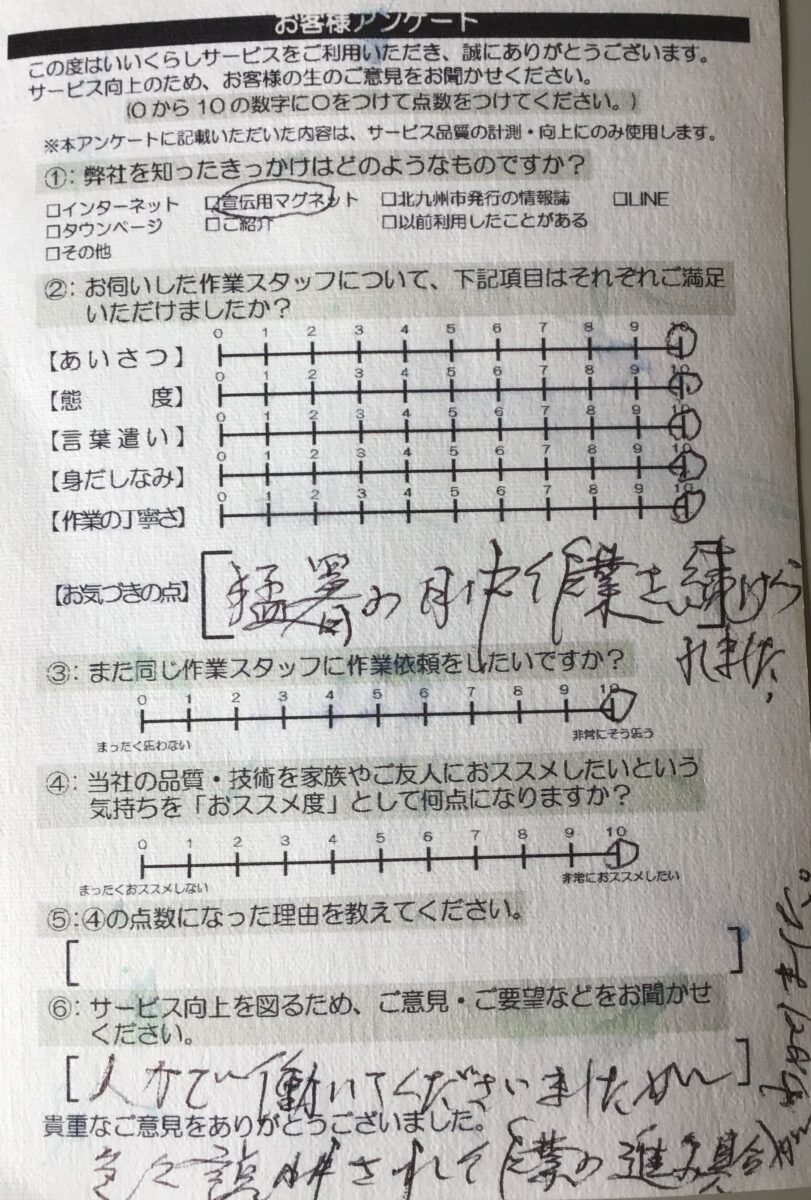 お客様アンケート
この度はいいくらしサービスをご利用いただき、誠にありがとうございます。
サービス向上のため、お客様の生のご意見をお聞かせください。
(0から10の数字に○をつけて点数をつけてください。)
※本アンケートに記載いただいた内容は、サービス品質の計測・向上にのみ使用します。
①:弊社を知ったきっかけはどのようなものですか?
□インターネット □宣伝用マグネット □北九州市発行の情報誌 □LINE
□タウンページ □ご紹介 □以前利用したことがある
□その他
②:お伺いした作業スタッフについて、下記項目はそれぞれご満足
いただけましたか?
0 1 2 3 4 5 6 7 8 9 10
【あいさつ】
0 1 2 3 4 5 6 7 8 9 10
【態度】
0 1 2 3 4 5 6 7 8 9 10
【言葉遣い】
0 1 2 3 4 5 6 7 8 9 10
【身だしなみ】
0 1 2 3 4 5 6 7 8 9 10
【作業の丁寧さ】
【お気づきの点】[猛暑の中 作業を続けら]
れました。
③:また同じ作業スタッフに作業依頼をしたいですか?
0 1 2 3 4 5 6 7 8 9 10
まったく思わない 非常にそう思う
④:当社の品質・技術を家族やご友人におススメしたいという
気持ちを「おススメ度」として何点になりますか?
0 1 2 3 4 5 6 7 8 9 10
まったくおススメしない 非常におススメしたい
⑤:④の点数になった理由を教えてください。
[ ]
⑥:サービス向上を図るため、ご意見・ご要望などをお聞かせ
ください。
[人かで働いてくださいましたが]
貴重なご意見をありがとうございました。
色々 されて作業の進み具合が